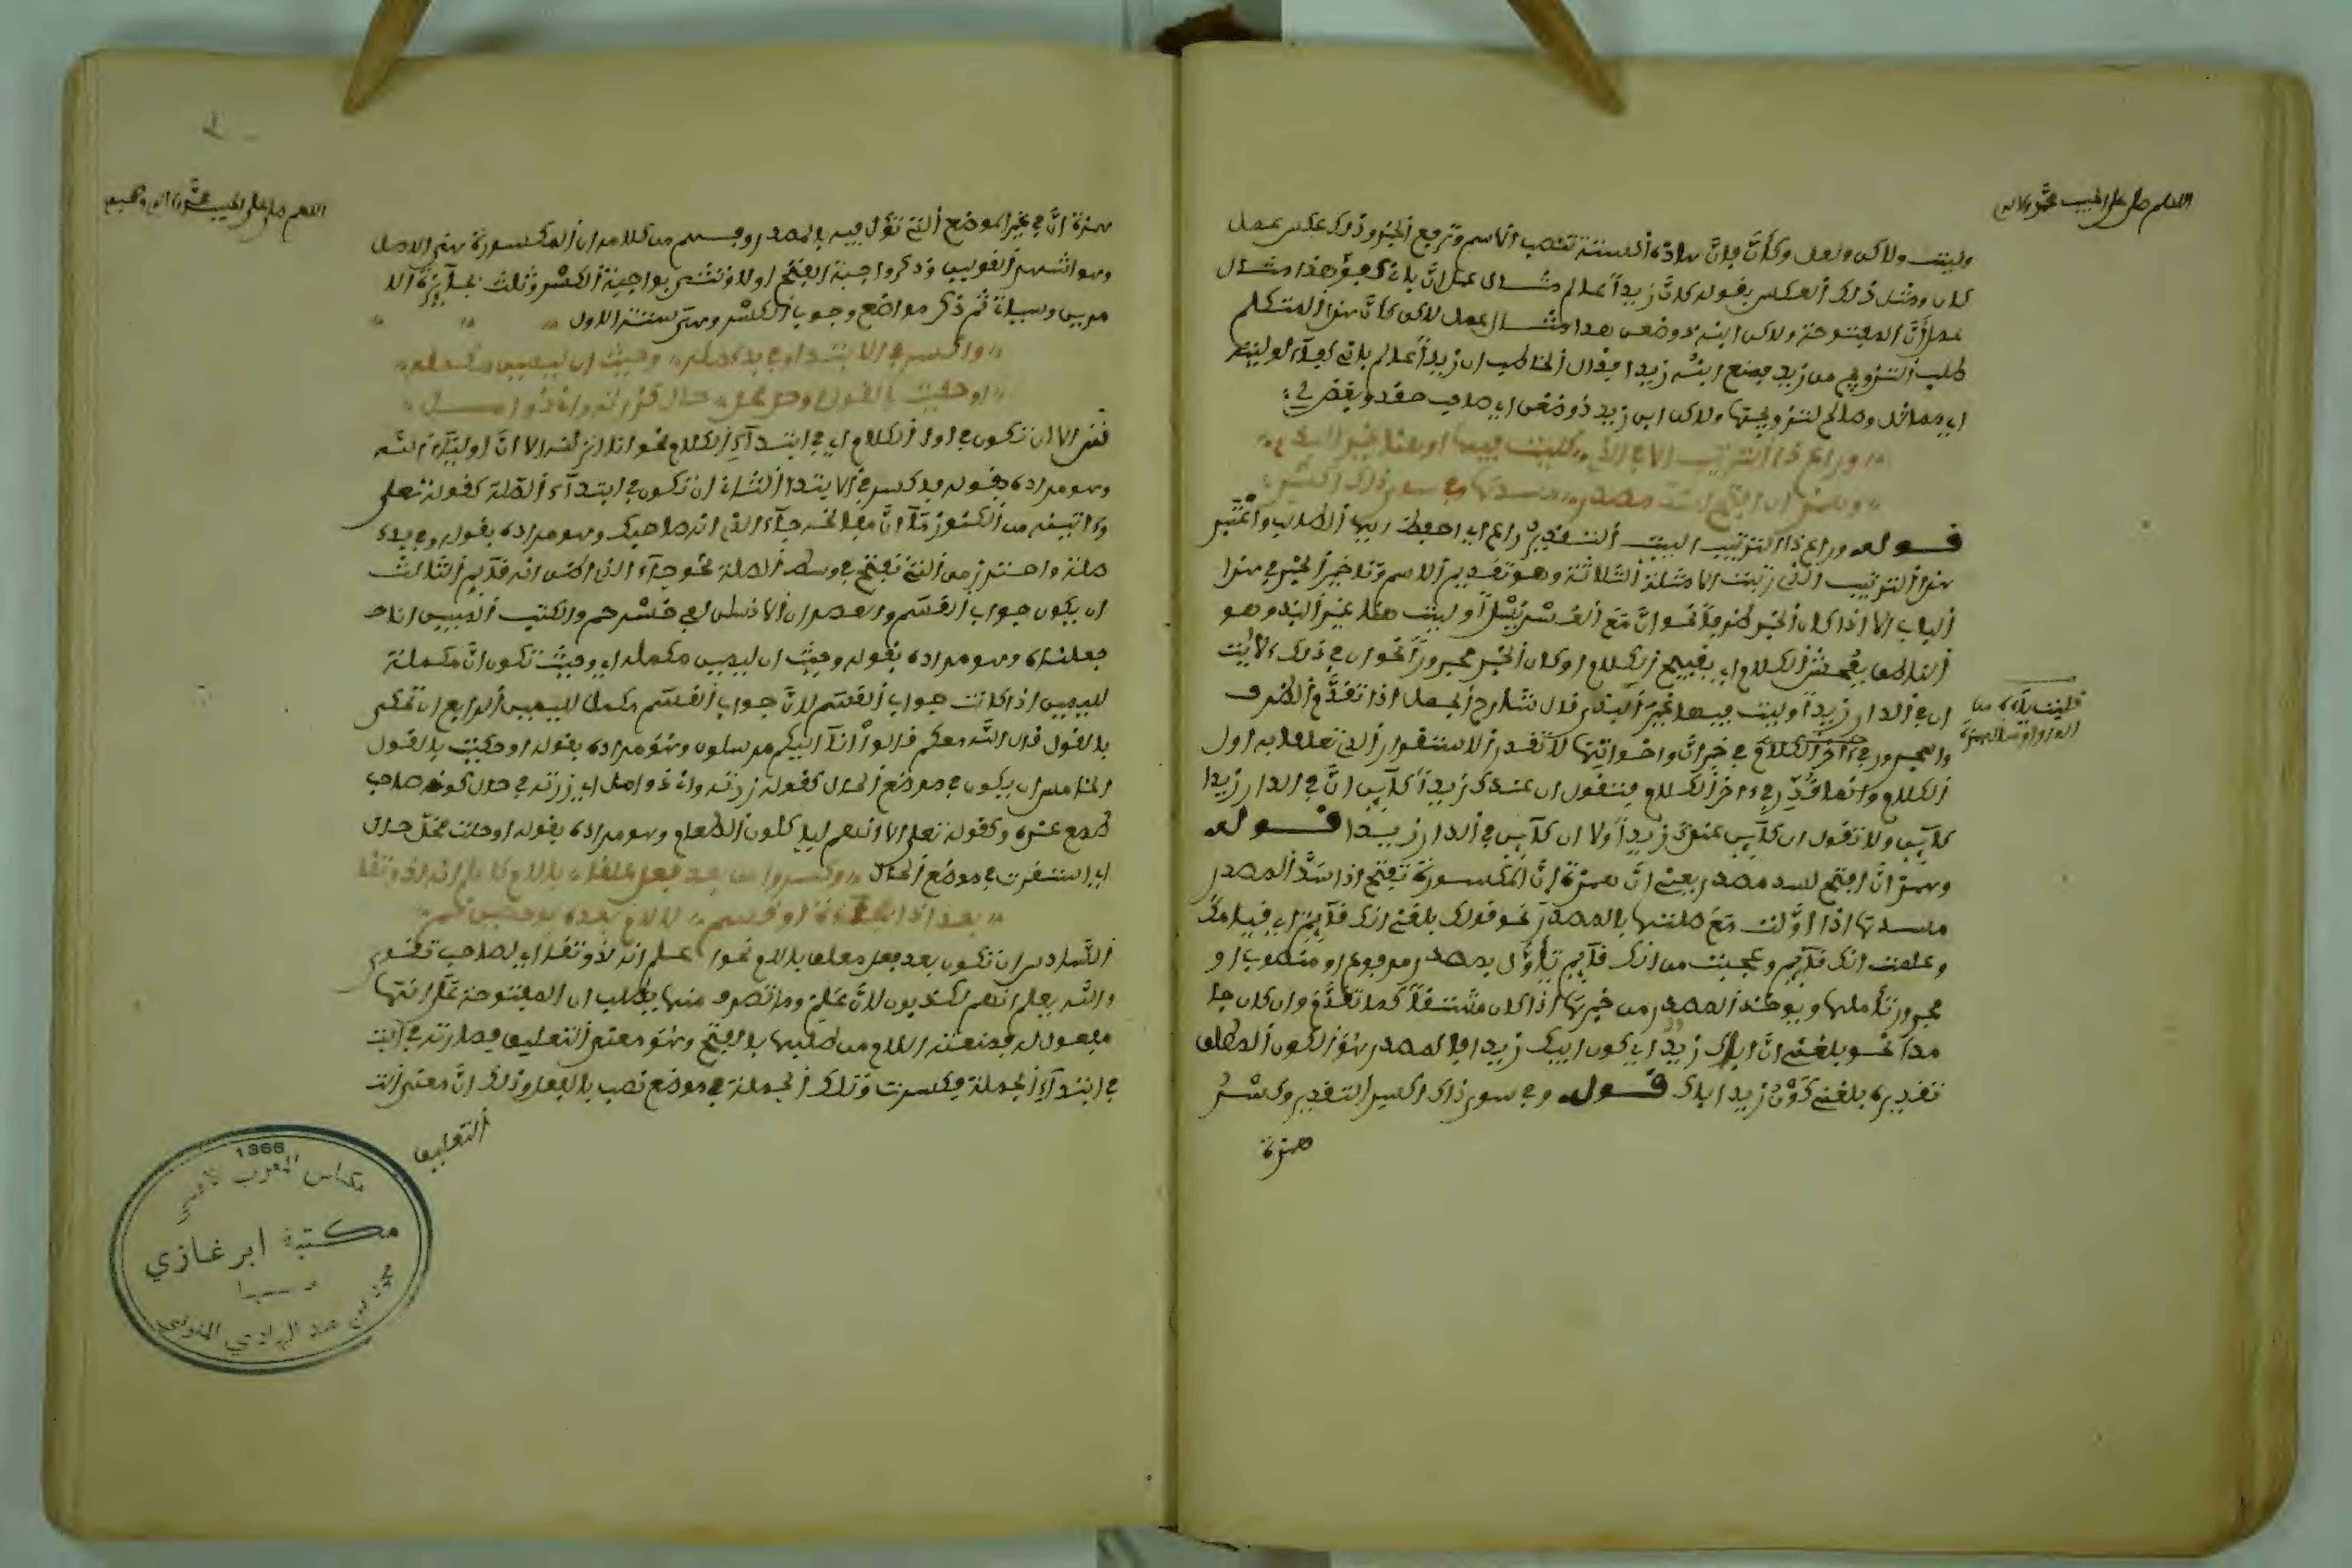 اللهم صل على الحبيب محمد وآله
وليت ولاكن ولعل وكأنّ فإنّ هاذه الستة تنصب الاسم وترفع الخبر وذلك عكس عمل
كان ومثل ذلك العكس بقوله كإنّ زيداً عالم مثال عمل إنّ باني كفؤ هذا مثال
عمل أنّ المفتوحة ولاكن ابنه ذو ضغن هذا مثال عمل لاكن كأنّ هذا المتكلم
طلب التزويج من زيد فمنع ابنه زيدا فقال المخاطب ان زيداً عالم باني كفء لوليته
اي مماثل وصالح لتزويجها ولاكن ابن زيد ذو ضغن اي صاحب حقد وبغض لي
وراع ذا الترتيب الا في الذي كليت فيها او هنا غير البذي
وهمز ان افتح لسد مصدر مسدها وفي سوى ذاك اكسر
قوله وراع ذا الترتيب البيت التقدير راع اي احفظ ايها الطالب واعتبر
هذا الترتيب الذي رتبت الامثلة الثلاثة وهو تقديم الاسم وتاخير الخبر في هذا
الباب الا اذا كان الخبر ظرفاً نحو انّ مع العسر يسراً وليت هنا غير البذي وهو
الناطق بفحش الكلام اي بقبيح الكلام او كان الخبر مجروراً نحو ان في ذلك لآيت
ان في الدار زيداً وليت فيها غير البذي قال شارح الجمل اذا تقدم الظرف
والمجرور في اخر الكلام في خبر انّ واخواتها لا تقدر الاستقرار الذي تعلقا به اول
الكلام وانما تقدره في ءاخر الكلام فتقول ان عندك زيداً كآين انّ في الدار زيدا
كآين ولا تقول ان كآين عندك زيداً ولا ان كآين في الدار زيدا قوله
وهمز انّ افتح لسد مصدر يعني انّ همزة إنّ المكسورة تفتح اذا سدّ المصدر
مسدها اذا اوّلت مع صلتها بالمصدر نحو قولك بلغني انك قآيم اي قيامك
وعلمت انك قآيم وعجبت من انك قآيم تأوّل بمصدر مرفوع او منصوب او
مجرور تأملها ويوخذ المصدر من خبرها اذا كان مشتقاً كما تقدّم وان كان جا
مدا نحو بلغني انّ اباك زيد اي كون ابيك زيدا فالمصدر هو الكون المطلق
تقديره بلغني كون زيد اباك قوله وفي سوى ذاك اكسر التقدير وكسر
همزة
اللهم صل على الحبيب محمد وآله وصحبه
همزة انّ في غير الموضع التي تؤل فيه بالمصدر وفهم من كلامه ان المكسورة هي الاصل
وهو اشهر القولين وذكر واجبة الفتح اولا وثنى بواجبة الكسر وثلث بجآئزة الا
مرين وسياة ثم ذكر مواضع وجوب الكسر وهي ستة الاول
واكسر في الابتدا وفي بدء صله وحيث ان ليمين مكمله
او حكيت بالقول او حلت محل حال كزرته واني ذو امل
يعني الا ان تكون في اول الكلام اي في ابتدآء الكلام نحو انا انزلنه الا انّ اوليآء الله
وهو مراده بقوله فاكسر في الابتدا الثاني ان تكون في ابتدآء الصلة كقوله تعلى
وءاتينه من الكنوز مآ انّ مفاتحه جآء الذي انه صاحبك وهو مراده بقوله وفي بدء
صلة واحترز من التي تفتح في وسط الصلة نحو جآء الذي اظن انه قآيم الثالث
ان يكون جواب القسم والعصر ان الانسن لفي خسر حم والكتب المبين انا
جعلنه وهو مراده بقوله وحيث ان ليمين مكمله اي وحيث تكون انّ مكملة
لليمين اذا كانت جواب القسم لانّ جواب القسم مكمل لليمين الرابع ان تحكى
بالقول قال الله معكم قالوا انآ اليكم مرسلون وهو مراده بقوله او حكيت بالقول
الخامس ان يكون في موضع الحال كقوله زرته واني ذو امل اي زرته في حال كونه صاحب
طمع عنده وكقوله تعلى الا انهم لياكلون الطعام وهو مراده بقوله او حلت محلّ حال
اي استقرت في موضع الحال وكسروا من بعد فعل علقا باللام كاعلم انه لذو تقى
بعد اذا فجاءة او قسم لا لام بعده بوجهين نمي
السادس ان تكون بعد فعل معلق باللام نحو اعلم انه لذو تقى اي لصاحب تقوى
والله يعلم انهم لكذبون لانّ علم وما تصرف منها يطلب ان المفتوحة على انها
مفعول له فمنعته اللام من طلبها بالفتح وهو معنى التعليق فصارت في
في ابتدآء الجملة فكسرت وتلك الجملة في موضع نصب بالفعل وذلك انّ معنى
التعليق
1366
مكناس المغرب الأقصى
مكتبة ابن غازي
محمد بن عبد الهادي المنوني